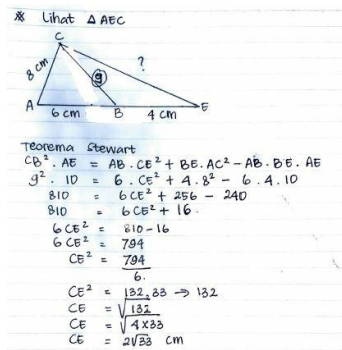 ※ Lihat △ AEC
C
8 cm
9
?
A
6 cm
B
4 cm
E
Teorema Stewart
CB² . AE = AB . CE² + BE . AC² - AB . BE . AE
9² . 10 = 6 . CE² + 4 . 8² - 6 . 4 . 10
810 = 6CE² + 256 - 240
810 = 6CE² + 16 .
6CE² = 810 - 16
6CE² = 794
CE² = 794
6.
CE² = 132,33 → 132
CE = √132
CE = √4×33
CE = 2√33 cm